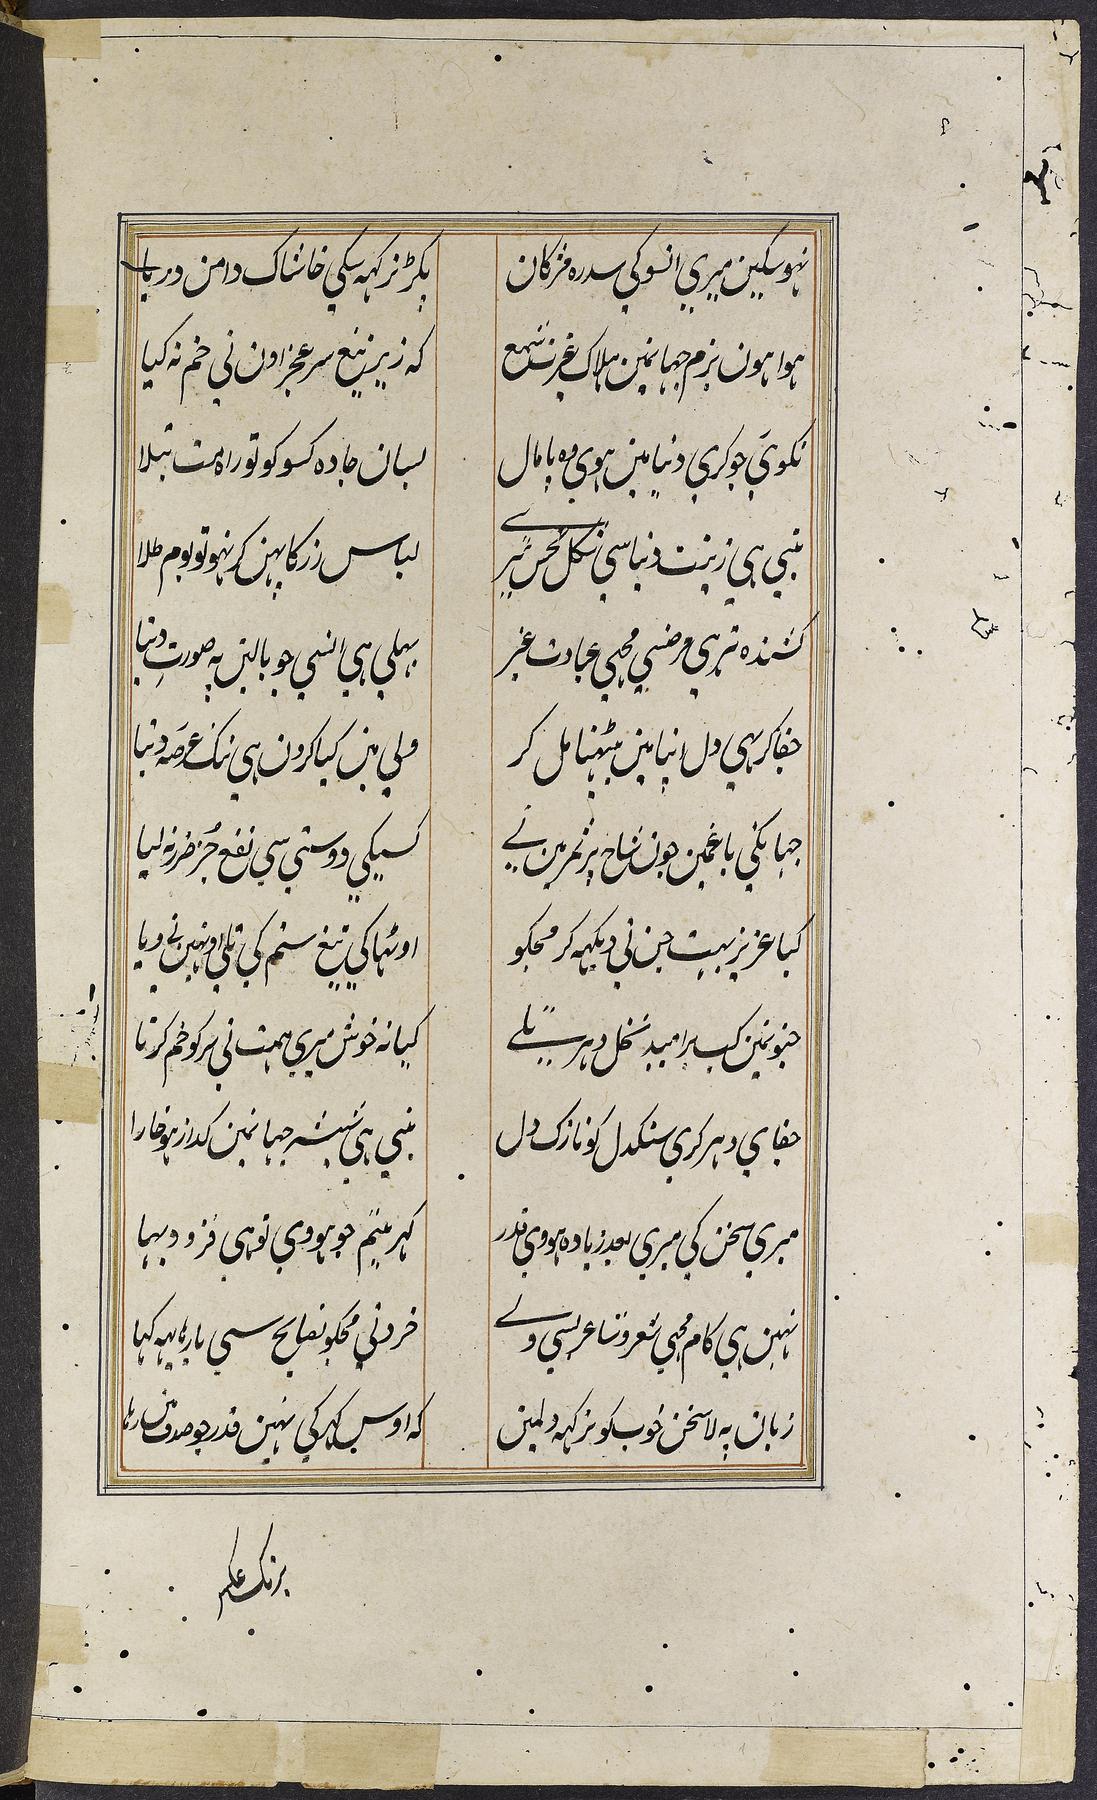 نہو سکین میری انسو کی سدرہ مژکان
پکڑ نرکہہ سکی خاشاک دامن دریا
ہوا ہون بزم جہانمین ہلاک غیرت شمع
کہ زیر تیغ سر عجز اون نی خم نہ کیا
نکوئی جو کری دنیا مین ہوی وہ پامال
بسان جادہ کسو کو تو راہ مت بتلا
بنی ہی زینت دنیا سی شکل نحس تیرے
لباس زر کا پہن کر نہو تو بوم طلا
کشندہ تر ہی مرض سی مجہی عیادت غیر
بہلی ہی انسی جو بالین پہ صورت دنیا
جفا کر ہی دل اپنا مین بیٹہنا مل کر
ولی مین کیا کرون ہی تنک عرصہ دنیا
جہانکی باغمین جون شاخ پر ثمر مین نے
کسیکی دوستی سی نفع جز ضرر نہ لیا
کیا عزیز بہت جن نی دیکہہ کر مجکو
اوٹہا کی تیغ ستم کی تلی اونہین نی دیا
جنو نمین کب بر امید نخل دہر سے یلے
کیا نہ خوش میری ہمت نی سر کو خم کرنا
جفای دہر کری سنکدل کو نازک دل
بنی ہی شیشہ جہانمین کداز ہو خارا
میری سخن کی میری بعد زیادہ ہووی قدر
کہر یتیم جو ہووی تو ہی فزود بہا
نہین ہی کام مجہی شعر و شاعری سی ولے
خرد نی مجکو نصایح سی بارہا یہہ کہا
زبان پہ لا سخن خوب کو نرکہہ دلمین
کہ اوس کہر کی نہین قدر جو صدف مین رہا
برنک عکس